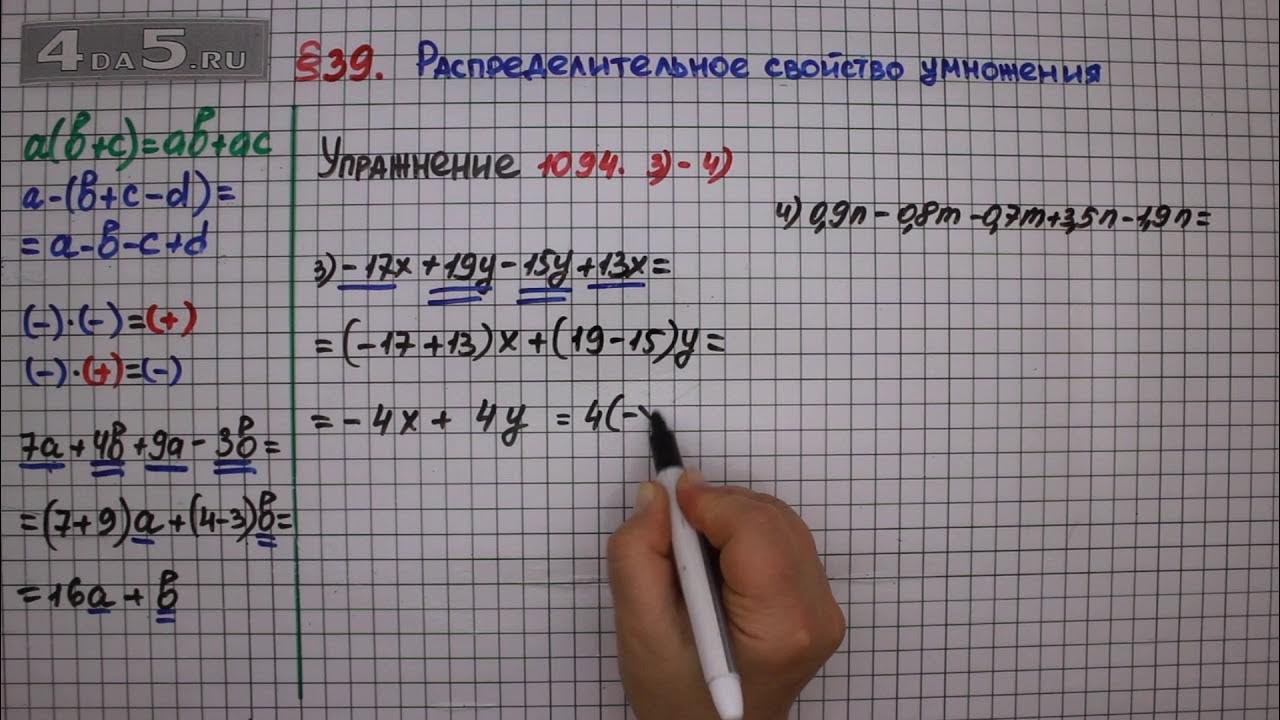 4DA5.RU
§39. Распределительное свойство умножения
a(b+c)=ab+ac
a-(b+c-d)=
=a-b-c+d
(-)·(-)=(+)
(-)·(+)=(-)
7a+4b+9a-3b=
=(7+9)a+(4-3)b=
=16a+b
Упражнение 1094. 3)-4)
3) -17x+19y-15y+13x=
=(-17+13)x+(19-15)y=
=-4x+4y =4(-x
4) 0,9n-0,8m-0,7m+3,5n-1,9n=